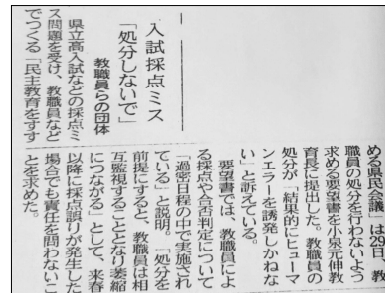 入試採点ミス
「処分しないで」
教職員らの団体
県立高入試などの採点ミ
ス問題を受け、教職員など
でつくる「民主教育をすす
める県民会議」は29日、教
職員の処分を行わないよう
求める要望書を小泉元伸教
育長に提出した。教職員の
処分が「結果的にヒューマ
ンエラーを誘発しかねな
い」と訴えている。
要望書では、教職員によ
る採点や合否判定について
「過密日程の中で実施され
ている」と説明。「処分を
前提にすると、教職員は相
互監視することとなり萎縮
につながる」として、来春
以降に採点誤りが発生した
場合でも責任を問わないこ
とを求めた。